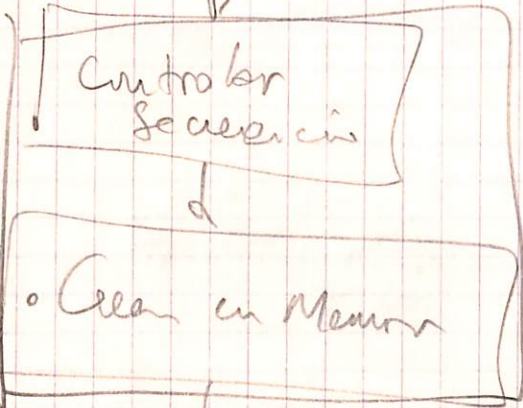 Controlar
Secuencia
• Crear en Memoria